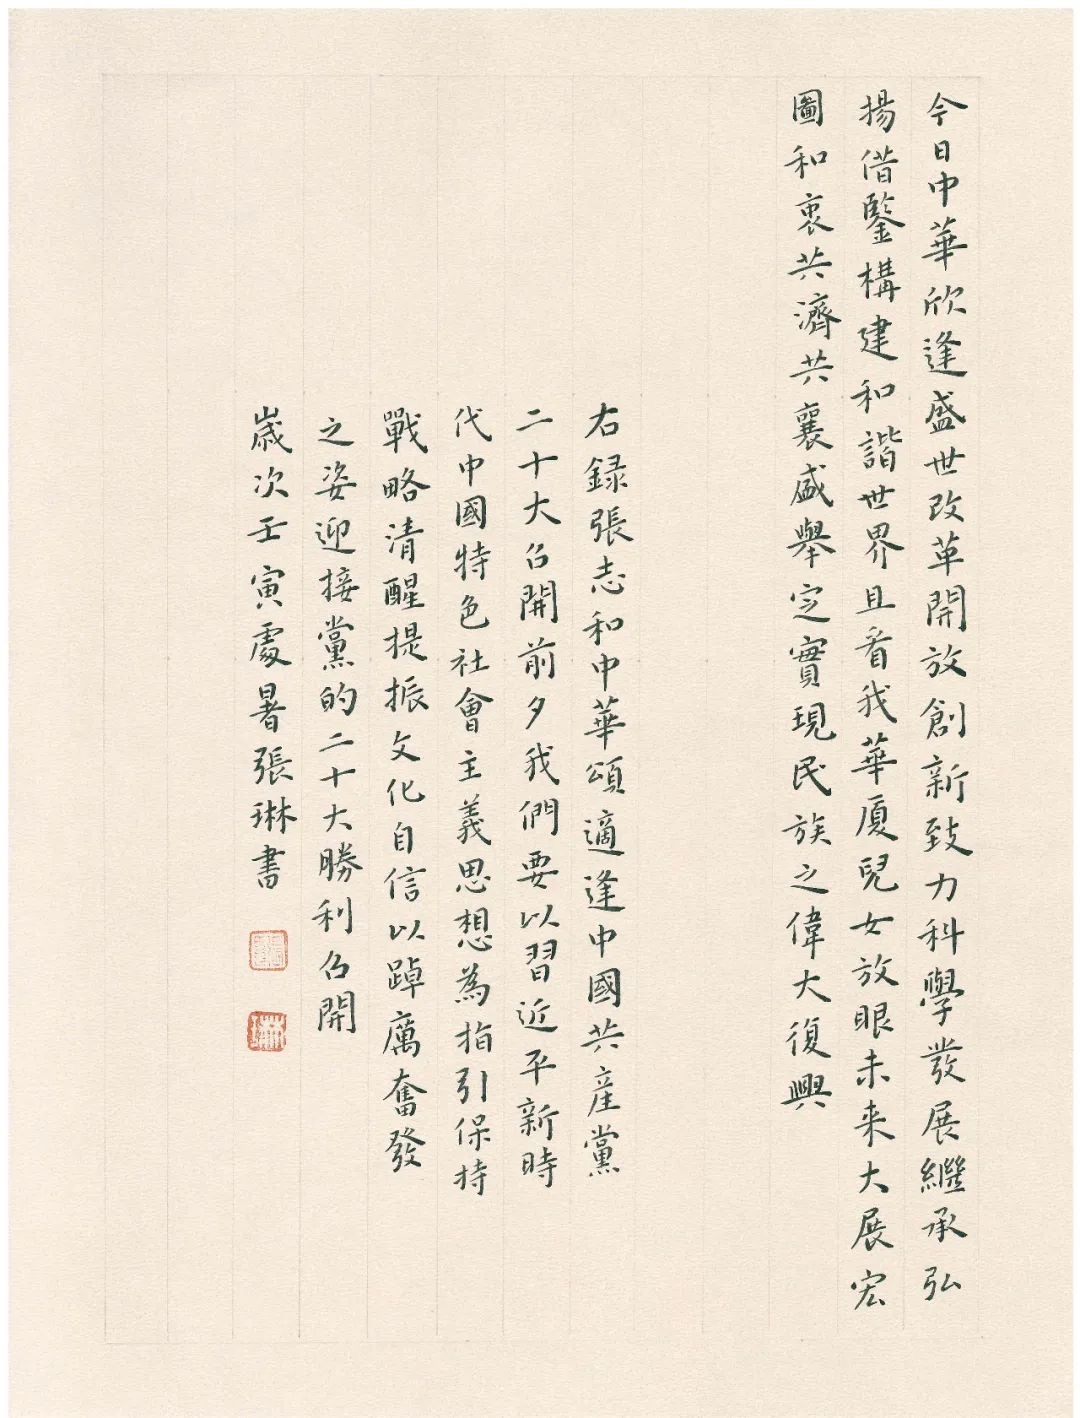 今日中華欣逢盛世改革開放創新致力科學發展繼承弘
揚借鑒構建和諧世界且看我華厦兒女放眼未来大展宏
圖和衷共濟共襄盛舉定實現民族之偉大復興
右録張志和中華頌適逢中國共産黨
二十大召開前夕我們要以習近平新時
代中國特色社會主義思想為指引保持
戰略清醒提振文化自信以踔厲奮發
之姿迎接黨的二十大勝利召開
歲次壬寅處暑張琳書
張
琳